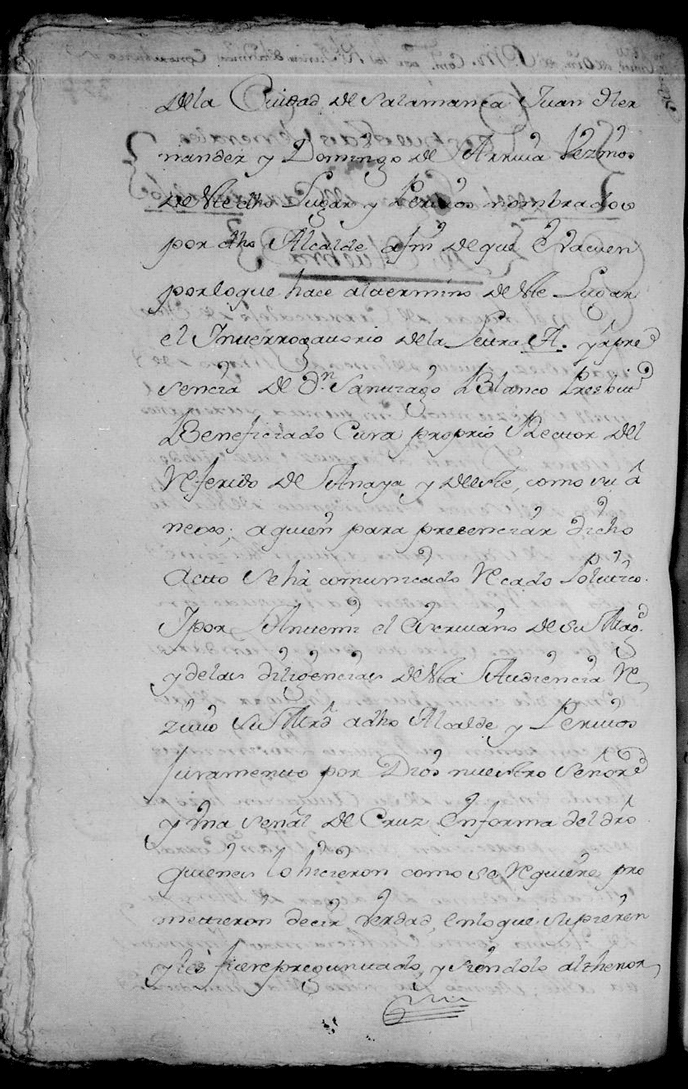 Dela Ciudad de Salamanca Juan Her
nandez y Domingo de Arriva Vezinos
de este dho Lugar y Peritos nombrados
por dho Alcalde a fin de que evacuen
por lo que hace al termino de este Lugar
el Interrogatorio dela Letra A. y en pre
sencia de Dn. Santiago Blanco Presvit.o
Beneficiado Cura proprio Rector del
referido de Anaya, y de este, como su á
nexo; a quien para presenciar dicho
acto se há comunicado recado Politico.
I por Antemi el escrivano de su Mag.d
y delas diligencias de esta Audiencia re
zivio su Mrd. a dho Alcalde y Peritos
Juramento por Dios nuestro Señor
y una señal de Cruz en forma del dro
quienes lo hicieron como se requiere pro
metieron decir verdad, en lo que supieren
y les fuere preguntado, y siendolo al thenor